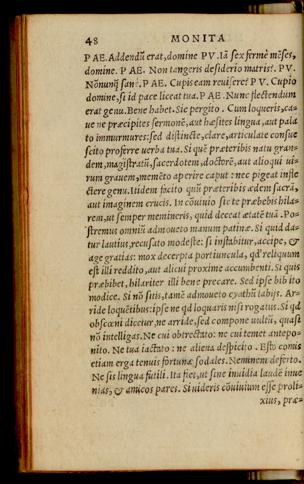 48 MONITA
PAE. Addendū erat, domine PV. Iā sex fermè mēses,
domine. PAE. Non tangeris desiderio matris? PV.
Nōnunq̄ sanè. PAE. Cupis eam reuisere? PV. Cupio
domine, si id pace liceat tua. PAE. Nunc flectendum
erat genu. Bene habet. Sic pergito. Cum loqueris, ca-
ue ne præcipites sermonē, aut hæsites lingua, aut pala
to immurmures: sed distinctè, clarè, articulate consue
scito proferre uerba tua. Si quē præteribis natu gran-
dem, magistratū, sacerdotem, doctorē, aut alioqui ui-
rum grauem, memēto aperire caput: nec pigeat infle
ctere genu. Itidem facito quū præteribis ædem sacrā,
aut imaginem crucis. In cōuiuio sic te præbebis hila-
rem, ut semper memineris, quid deceat ætatē tuā. Po-
stremus omniū admoueto manum patinæ. Si quid da-
tur lautius, recusato modestè: si instabitur, accipe, &
age gratias: mox decerpta portiuncula, qd' reliquum
est illi reddito, aut alicui proxime accumbenti. Si quis
præbibet, hilariter illi bene precare. Sed ipse bibito
modice. Si nō sitis, tamē admoueto cyathū labijs. Ar-
ride loquētibus: ipse ne qd loquaris nisi rogatus. Si qd
obscœni dicetur, ne arride, sed compone uultū, quasi
nō intelligas. Ne cui obtrectato: ne cui temet antepo-
nito. Ne tua iactato: ne aliena despicito. Esto comis
etiam erga tenuis fortunæ sodales. Neminem deferto.
Ne sis lingua futili. Ita fiet, ut sine inuidia laudē inue
nias, & amicos pares. Si uideris cōuiuium esse proli-
xius, præ-